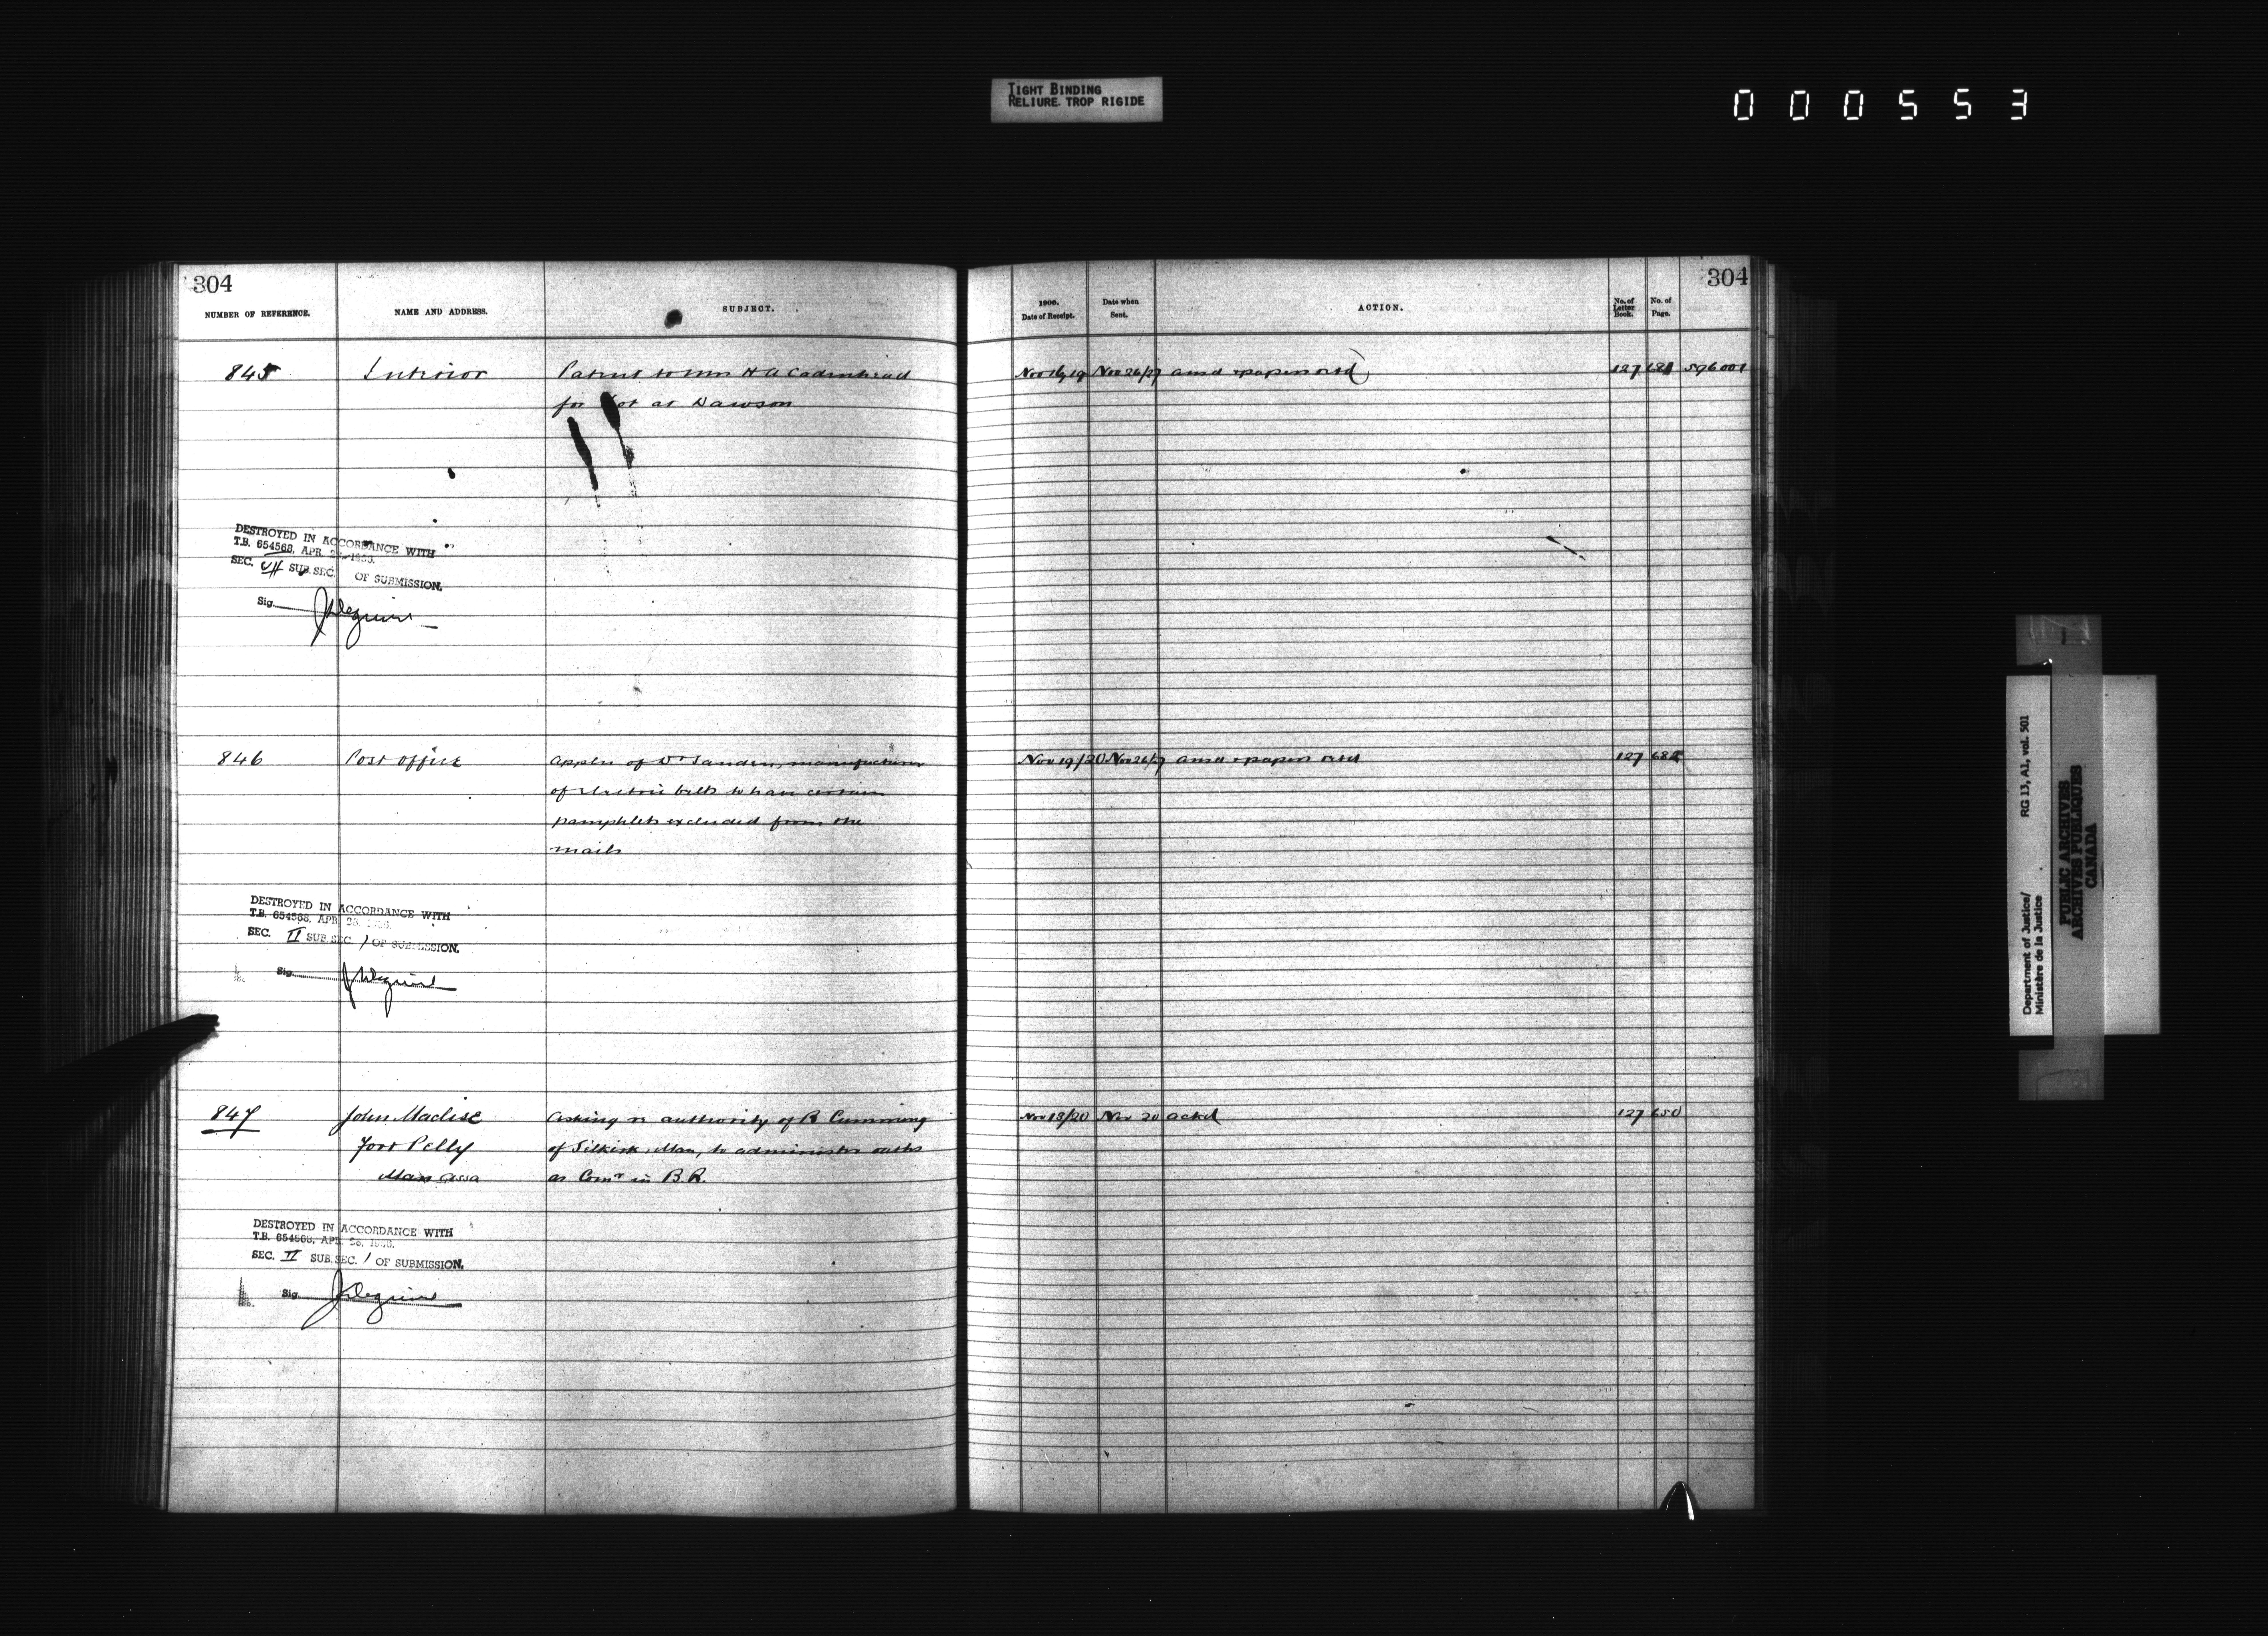 TIGHT BINDING
RELIURE TROP RIGIDE
000553
304
NUMBER OF REFERENCE.
NAME AND ADDRESS.
SUBJECT.
1900.
Date of Receipt.
Date when
Sent.
ACTION.
No. of
Letter
Book.
No. of
Page.
304
845 Interior Patent to Mrs H A Cadenhead Nov 16/19 Nov 26/27 ansd & papers retd 127 681 596001
for lot at Dawson
DESTROYED IN ACCORDANCE WITH
T.B. 654568, APR.
SEC. VII SUB. SEC. OF SUBMISSION.
Sig.
846 Post Office Appln of Dr Sanden, manufacturer Nov 19/20 Nov 26/27 ansd & papers retd 127 682
of electric belts to have certain
pamphlets excluded from the
mails
DESTROYED IN ACCORDANCE WITH
T.B. 654568, APR.
SEC. II SUB. SEC. 1 OF SUBMISSION.
Sig.
847 John Maclise Asking re authority of R Cumming Nov 13/20 Nov 20 ackd 127 650
Fort Pelly of Selkirk, Man, to administer oaths
Man Assa as Comr in B.R.
DESTROYED IN ACCORDANCE WITH
T.B. 654568, APR.
SEC. II SUB. SEC. 1 OF SUBMISSION.
Sig.
Department of Justice/ RG 13, A1, vol. 501
Ministère de la Justice
PUBLIC ARCHIVES
ARCHIVES PUBLIQUES
CANADA